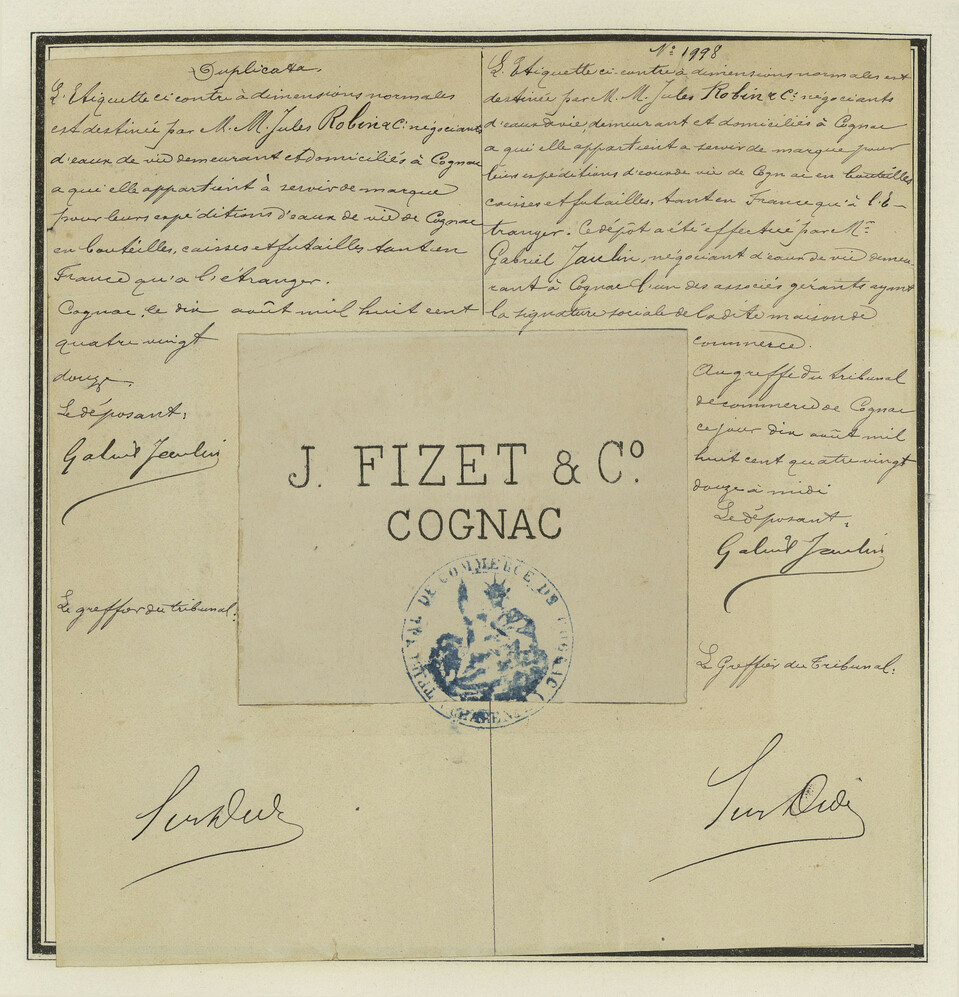 Duplicata.
L'Etiquette ci contre à dimensions normales
est destinée par M. M. Jules Robin & Cie négociants
d'eaux de vie demeurant et domiciliés à Cognac
a qui elle appartient à servir de marque
pour leurs expéditions d'eaux de vie de Cognac
en bouteilles, caisses et futailles tant en
France qu'a l'étranger.
Cognac, le dix août mil huit cent
quatre vingt
douze.
Le déposant:
Gabriel Jaulin
Le greffier du tribunal:
No 1998
L'Etiquette ci-contre à dimensions normales est
destinée par M. M. Jules Robin & Cie négociants
d'eaux de vie, demeurant et domiciliés à Cognac
a qui elle appartient a servir de marque pour
leurs expéditions d'eaux de vie de Cognac en bouteilles
caisses et futailles, tant en France qu'à l'é-
tranger. Ce dépôt a été effectué par Mr
Gabriel Jaulin, négociant d'eaux de vie demeu-
rant à Cognac l'un des associés gérants ayant
la signature sociale de la dite maison de
commerce.
Au greffe du tribunal
de commerce de Cognac
ce jour dix août mil
huit cent quatre vingt
douze à midi
Le déposant:
Gabriel Jaulin
Le Greffier du Tribunal:
J. FIZET & Co.
COGNAC
TRIBUNAL DE COMMERCE DE COGNAC
(CHARENTE)